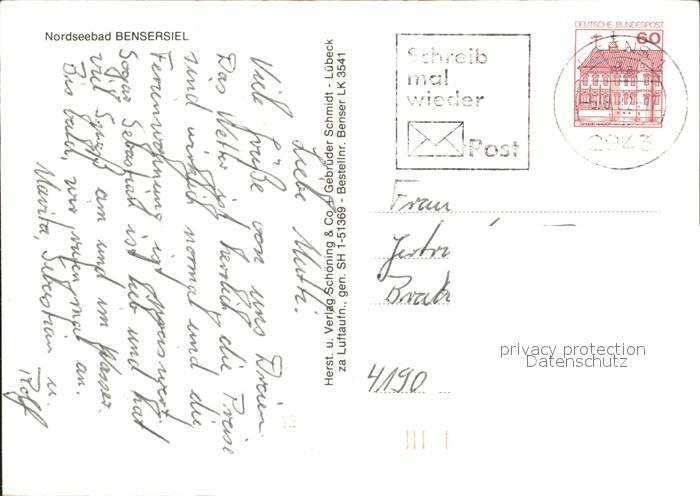 Nordseebad BENSERSIEL
Liebe Mutti.
Viele Grüße von uns Dreien.
Das Wetter ist herrlich die Preise
sind wirklich normal und die
Ferienwohnung ist preiswert.
Sogar Sebastian ist lieb und hat
viel Spaß am und im Wasser.
Bis bald, wir rufen mal an.
Marita, Sebastian u.
Rolf
Herst. u. Verlag Schöning & Co + Gebrüder Schmidt - Lübeck
za Luftaufn., gen. SH 1-51369 - Bestellnr. Benser LK 3541
Schreib
mal
wieder
Post
DEUTSCHE BUNDESPOST
60
2943
Frau
4190
privacy protection
Datenschutz
12